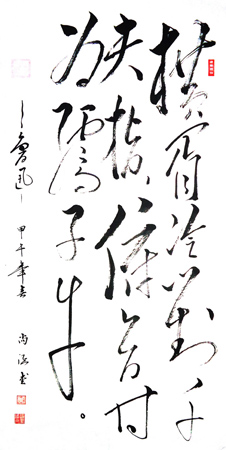 横眉冷对千
夫指，俯首甘
为孺子牛。
—鲁迅—
甲午年春 尚 书